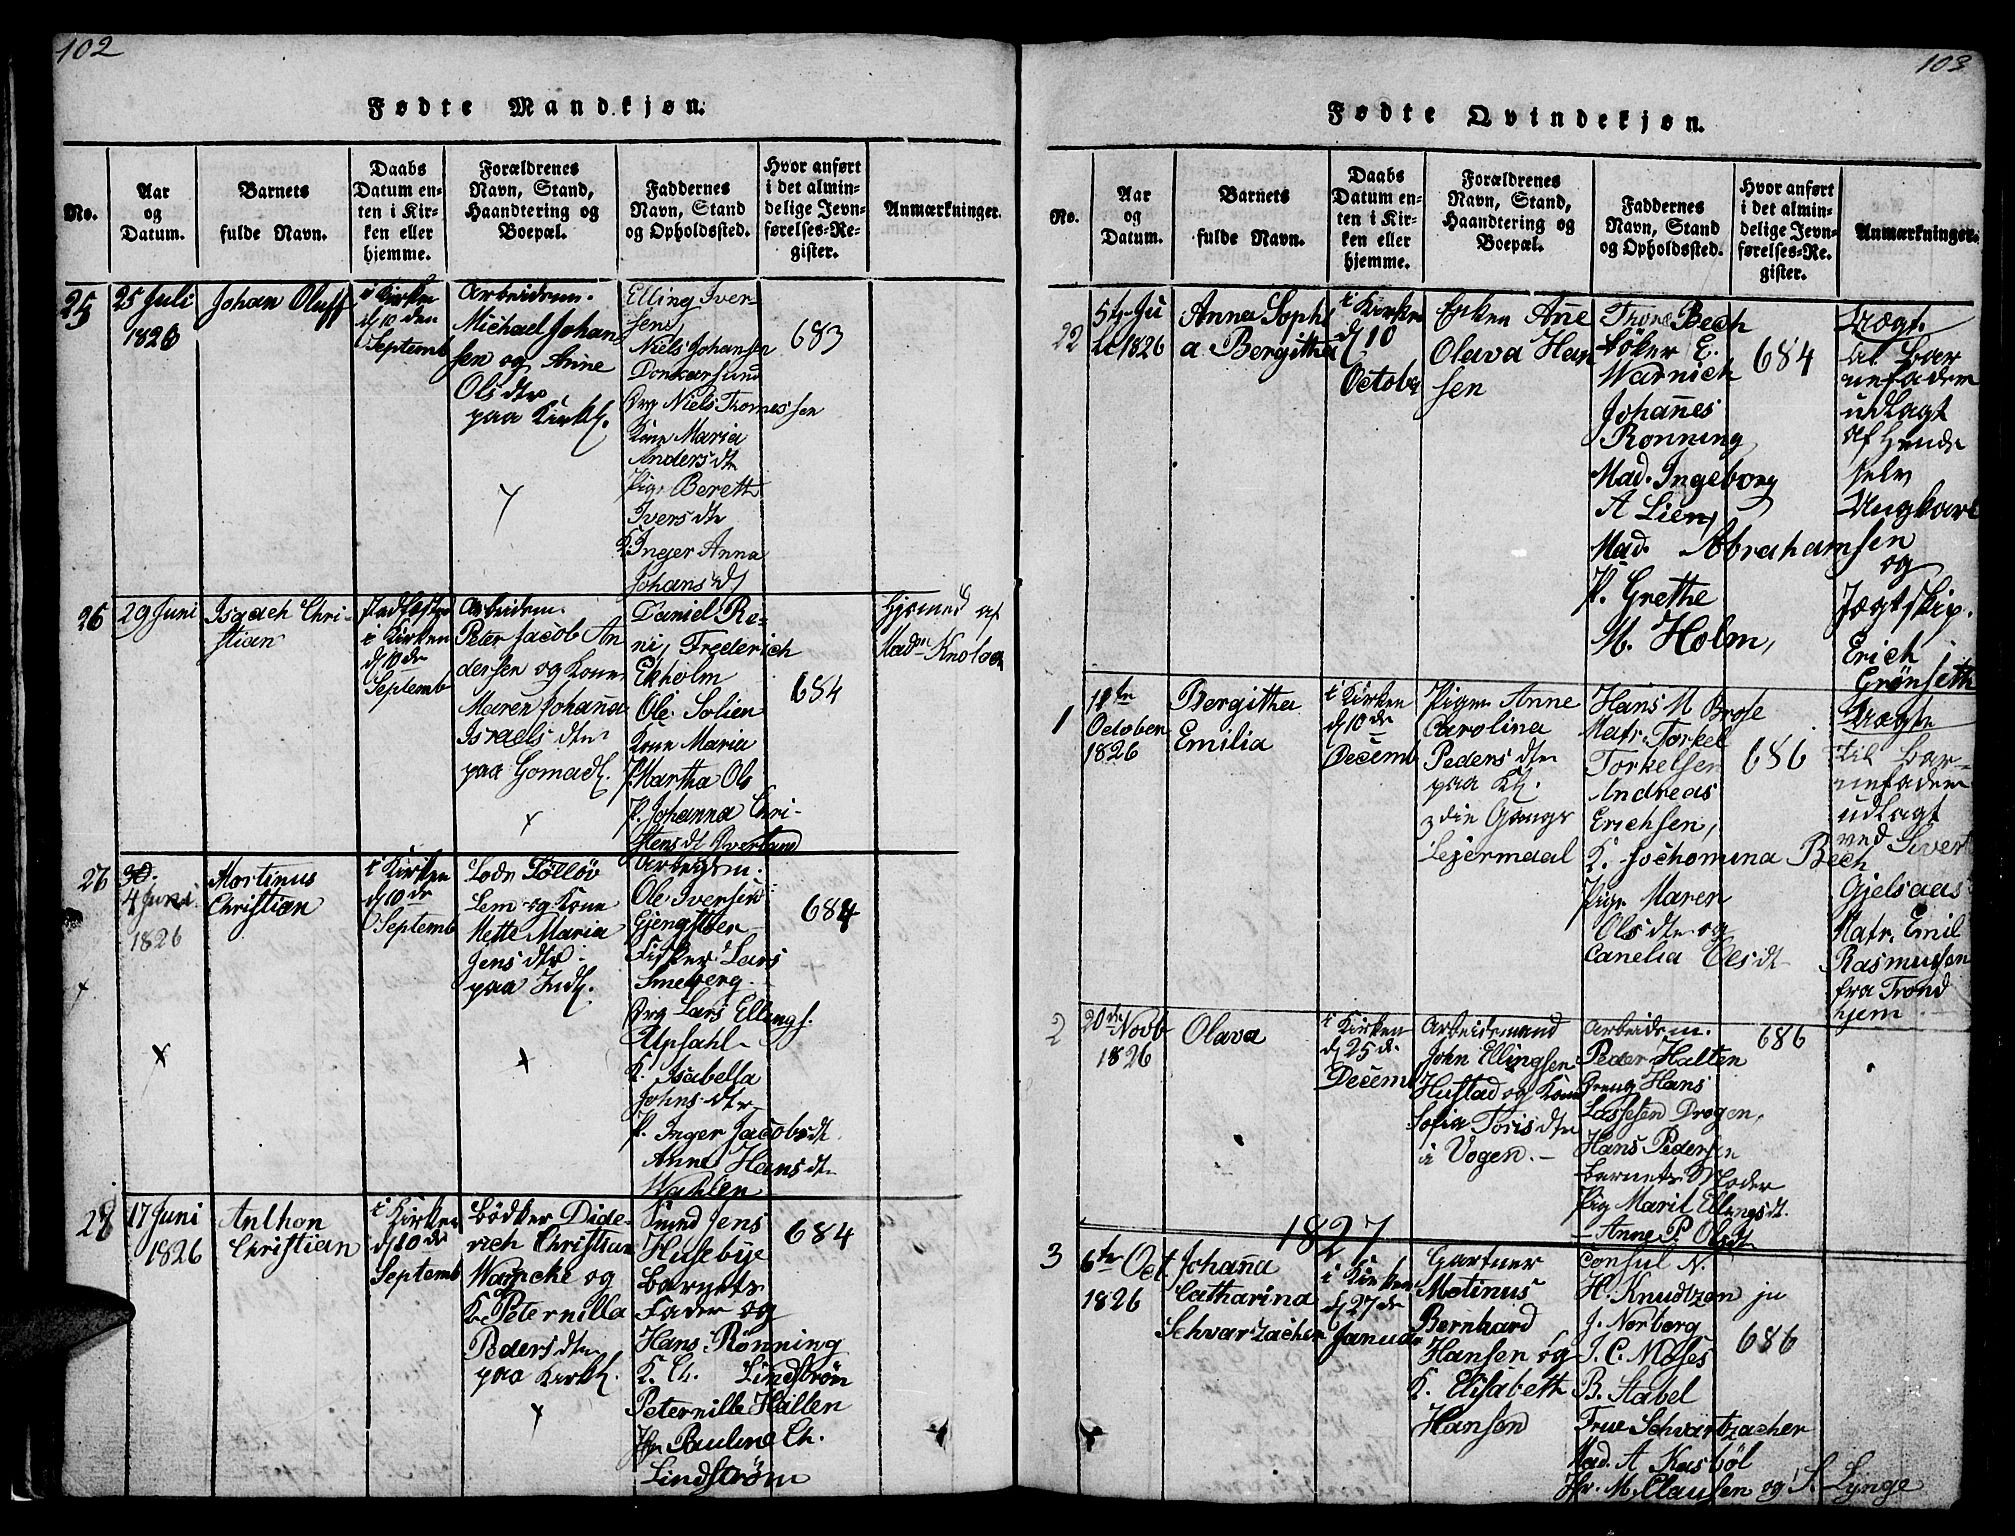 102
Fødte Mandkjøn.
No.
Aar
og
Datum.
Barnets
fulde Navn.
Daabs
Datum en-
ten i Kir-
ken eller
hjemme.
Forældrenes
Navn, Stand,
Haandtering og
Boepæl.
Faddernes
Navn, Stand
og Opholdssted.
Hvor anført
i det almin-
delige Jevn-
førelses-Re-
gister.
Anmærkninger.
25
25 Juli
1826
Johan Oluff
i Kirken
d 10 den
Septemb
Arbeidsm.
Michael Johan
sen og Anne
Ols dtr
paa Kirkl.
Elling Iver
sen,
Niels Johansen
Donkarsund
Drg Niels Tromessen
Kone Maria
Anders dtr
Pige Bereth
Ivers dtr
K. Inger Anna
Johans d
683
26
29 Juni
Isach Chri-
stian
Stadfæstet
i Kirken
d 10 de
Septemb
Arbeidsm.
Peter Jacob An
dersen og Kone
Maren Johaña
Israels dtr
paa Gomal.
Daniel Re-
ni, Frederich
Ekholm
Ole Solien
Kone Maria
P. Martha Ols
P. Johanna Chri-
stens dt Overland
684
Hjemed af
Madm
27
4 Juni
1826
Mortinus
Christian
i Kirken
d 10 de
Septemb
Lods Tolløv
Lem og Kone
Mette Maria
Jens dtr
paa Indl.
Arbeidsm.
Ole Iversen
Gjengstøer
Fisker Lars
Smeberg
Drg Lars Ellings.
Upsahl
K. Isabella
Johns dtr
P. Inger Jacobs dt
Anne Hans dtr
Wahlen
684
28
17 Juni
1826
Anthon
Christian
i Kirken
d 10 de
Septemb
Bødker Dide-
rich Christian
Warncke og
K. Peternilla
Peders dtr
paa Kirkl.
Svend Jens
Husebye
Barnets
Fader og
Hans Rønning
K. Ch. Lindstrøm
Peternille Hallen
Jfr Pauline Ch.
Lindstrøm
684
103
Fødte Qvindekjøn.
No.
Aar
og
Datum.
Barnets
fulde Navn.
Daabs
Datum en-
ten i Kir-
ken eller
hjemme.
Forældrenes
Navn, Stand,
Haandtering og
Boepæl.
Faddernes
Navn, Stand
og Opholdssted.
Hvor anført
i det almin-
delige Jevn-
førelses-Re-
gister.
Anmærkninger.
22
5te Ju
li 1826
Anna Sophi
a Bergitha
i Kirken
d 10
October
Enken Añe
Olava Han
sen
Trone Bech
Bøker E.
Warnich
Johañes
Rønning
Mad. Ingeborg
A Lien,
Mad. Abrahamsen
P. Grethe
M. Holm,
684
Uægte
til Bar
nefader
udlagt
af Hende
selv
Ungkarl
og
Jægtskip.
Erich
Grønseth
1
11te
October
1826
Bergitha
Emilia
i Kirken
d 10 de
Decemb
Pige Anne
Carolina
Peders dtr
paa Kl.
3die Gangs
Lejermaal
Hans M Brose
Matr. Torkel
Torkelsen
Andreas
Erichsen,
K. Jochomina Bech
Pige Maren
Ols dtr og
Canelia Ols dt
686
Uægte
til Bar-
nefader
udlagt
ved Sivert
Gjelsaas
Matr. Emil
Rasmussen
fra Trond
hjem
2
20de Novb
1826
Olava
i Kirken
d 25 de
Decemb
Arbeidsmand
John Ellingsen
Hustad og Kone
Sofia Toris dtr
i Vogen.
Arbeidsm.
Peder Halten
Dreng Hans
Lassesen Drogen,
Hans Pedersen
Barnets Moder
Pig Marit Ellingsdt.
Anne P. Olsdt
686
1827
3
6te Oct
1826
Johaña
Catharina
Schvartzacher
i Kirken
d 27 de
Januar
Gartner
Motinus
Bernhard
Hansen og
K. Elisabeth
Hansen
Consul N.
H. Knudtzon ju
J. Norborg
J. C. Moses
B. Stabel
Frue Schvartzacher
Mad. A Kasbøl
Jfr. M. Clausen og S. Lynge
686